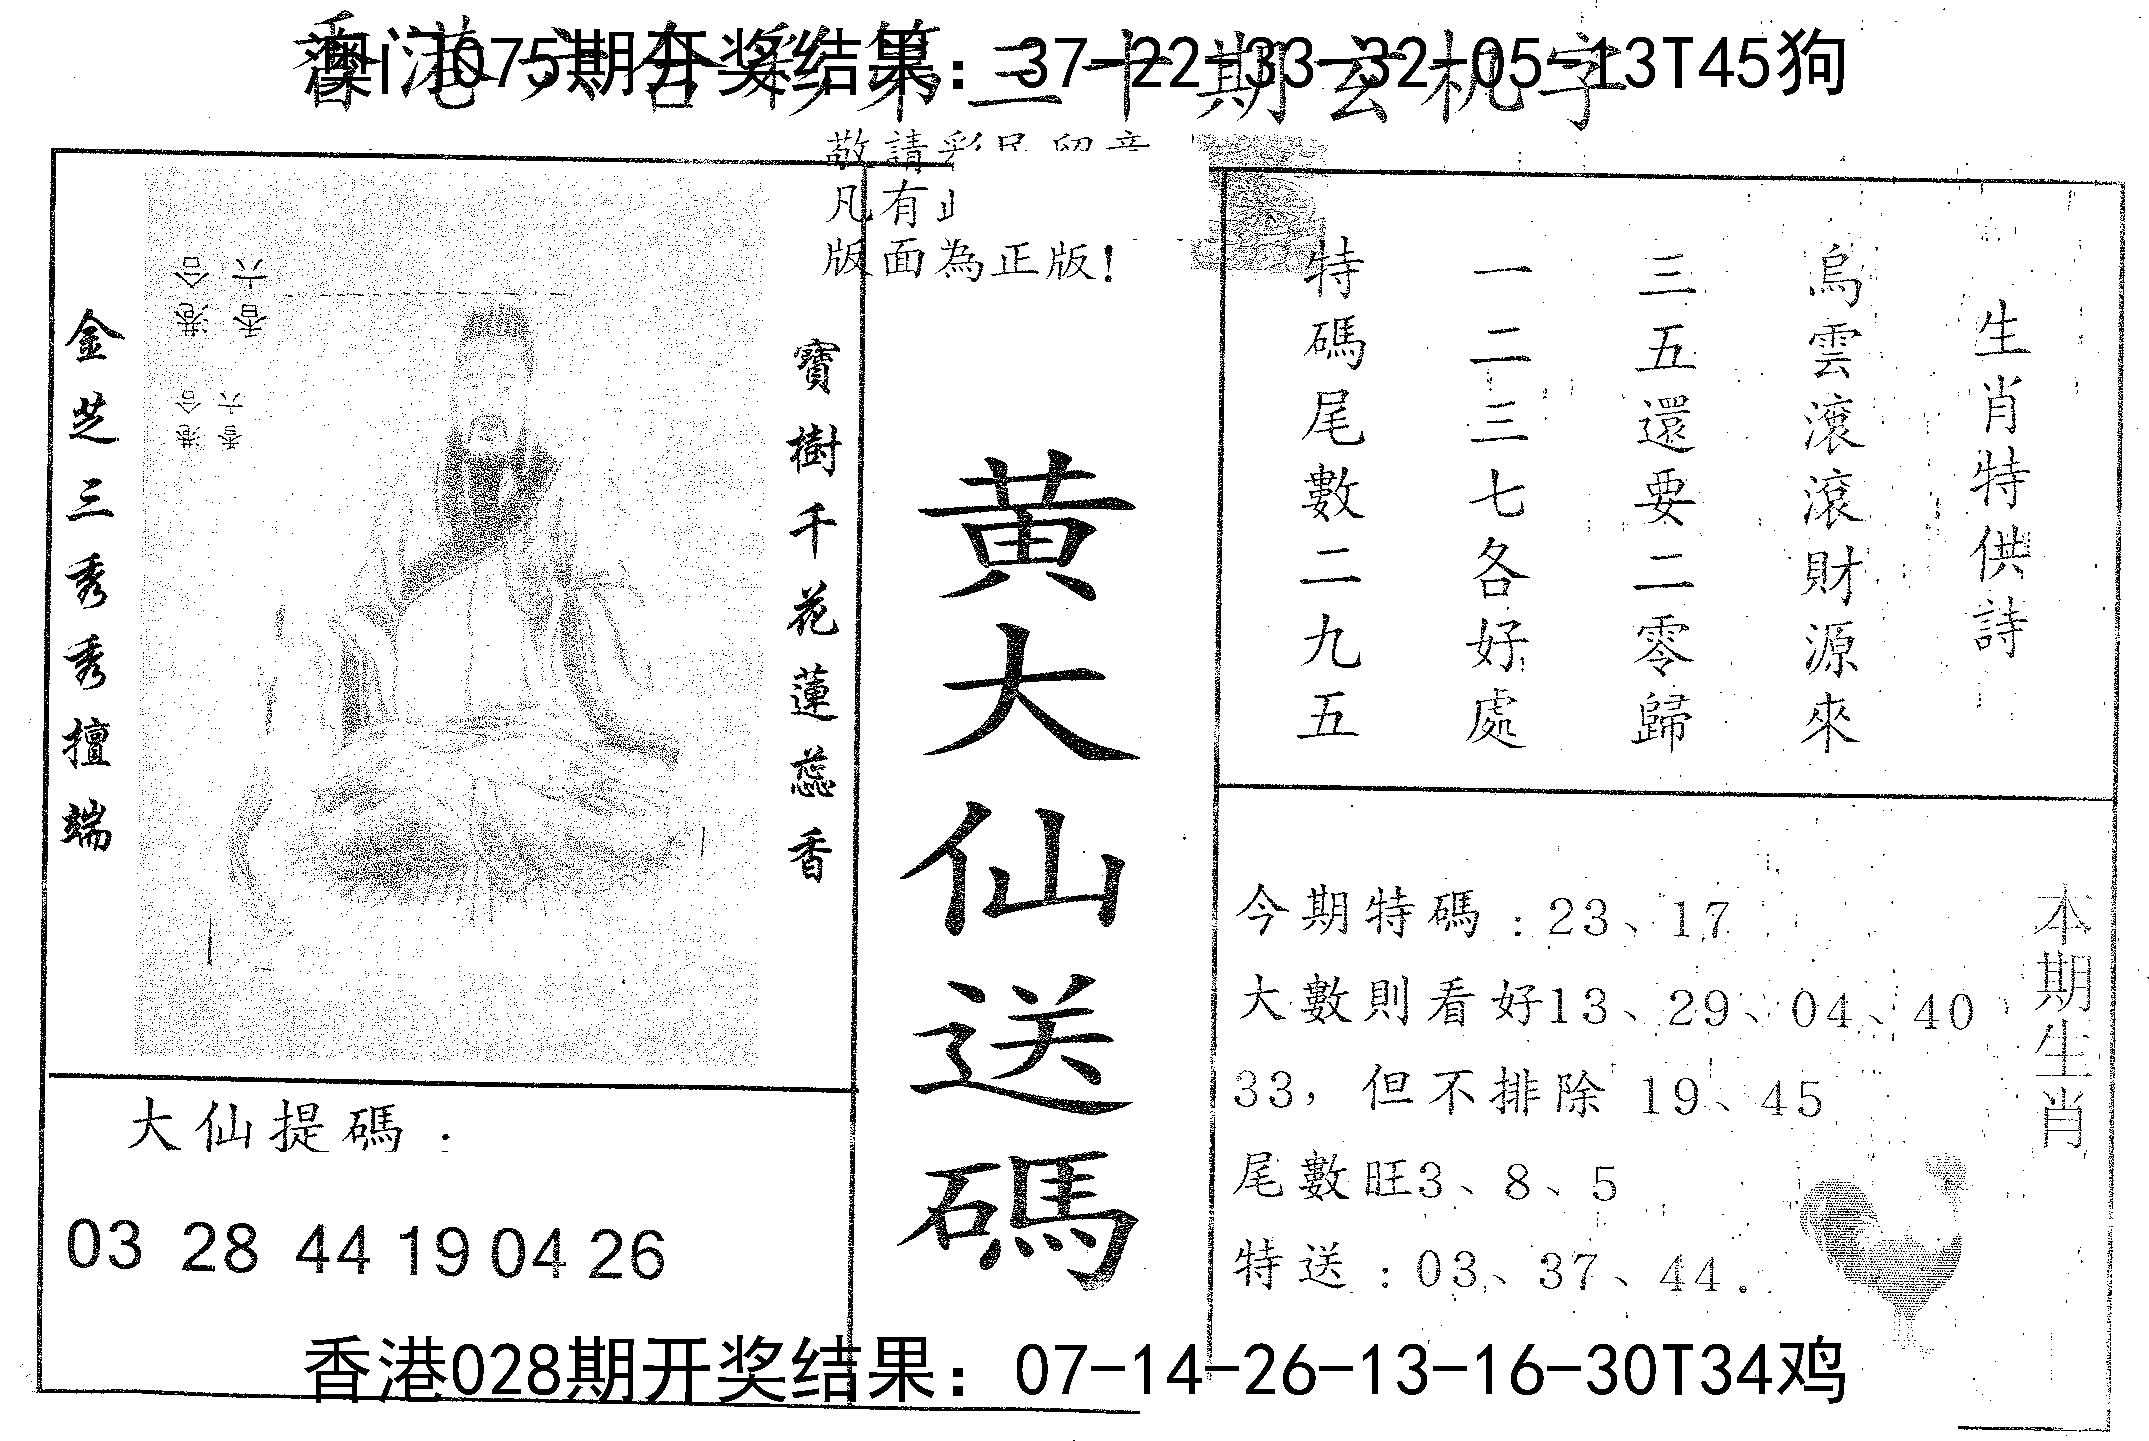 澳门075期开奖结果：37-22-33-32-05-13T45狗
香港六合彩第三十期玄机字
敬請彩民留意
凡有
版面為正版!
金芝三秀秀擅端
香港六合
香港六合
寶樹千花蓮蕊香
黄大仙送碼
生肖特供詩
烏雲滾滾財源來
三五還要二零歸
一二三七各好處
特碼尾數二九五
大仙提碼：
03 28 44 19 04 26
今期特碼：23、17
大數則看好13、29、04、40、
33，但不排除 19、45
尾數旺3、8、5
特送：03、37、44.
本期生肖
香港028期开奖结果：07-14-26-13-16-30T34鸡